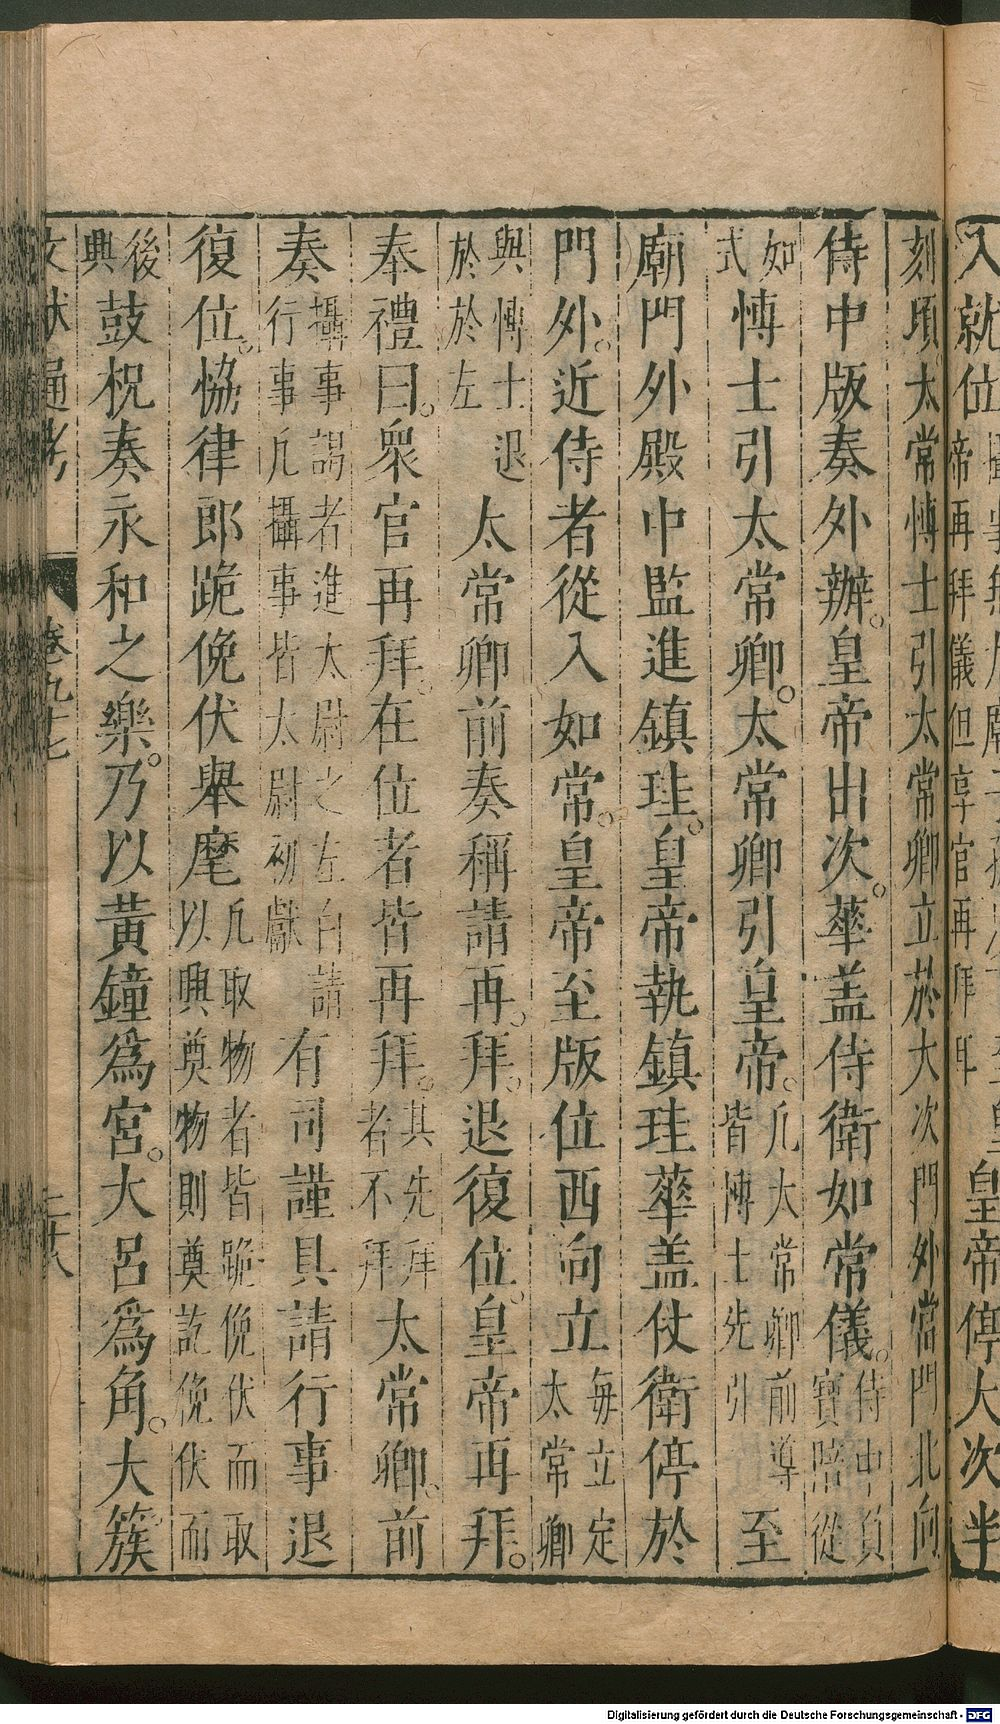 入就位
帝再拜儀但享官再拜耳
皇帝停大次半
刻頃太常博士引太常卿立於大次門外當門北向
侍中版奏外辦皇帝出次華盖侍衛如常儀侍中負
寳陪從
如
式博士引太常卿太常卿引皇帝凡大常卿前導
皆博士先引至
廟門外殿中監進鎮珪皇帝執鎮珪華盖仗衛停於
門外近侍者從入如常皇帝至版位西向立每立定
太常卿
與博士退
於於左太常卿前奏稱請再拜退復位皇帝再拜
奉禮曰衆官再拜在位者皆再拜其先拜
者不拜太常卿前
奏攝事謁者進太尉之左白請
行事凡攝事皆太尉初獻有司謹具請行事退
復位恊律郎跪俛伏舉麾凡取物者皆跪俛伏而取
以興奠物則奠訖俛伏而
後
興鼓柷奏永和之樂乃以黄鐘爲宮大呂爲角大簇
文獻通考 卷九十七 二十八
Digitalisierung gefördert durch die Deutsche Forschungsgemeinschaft - DFG